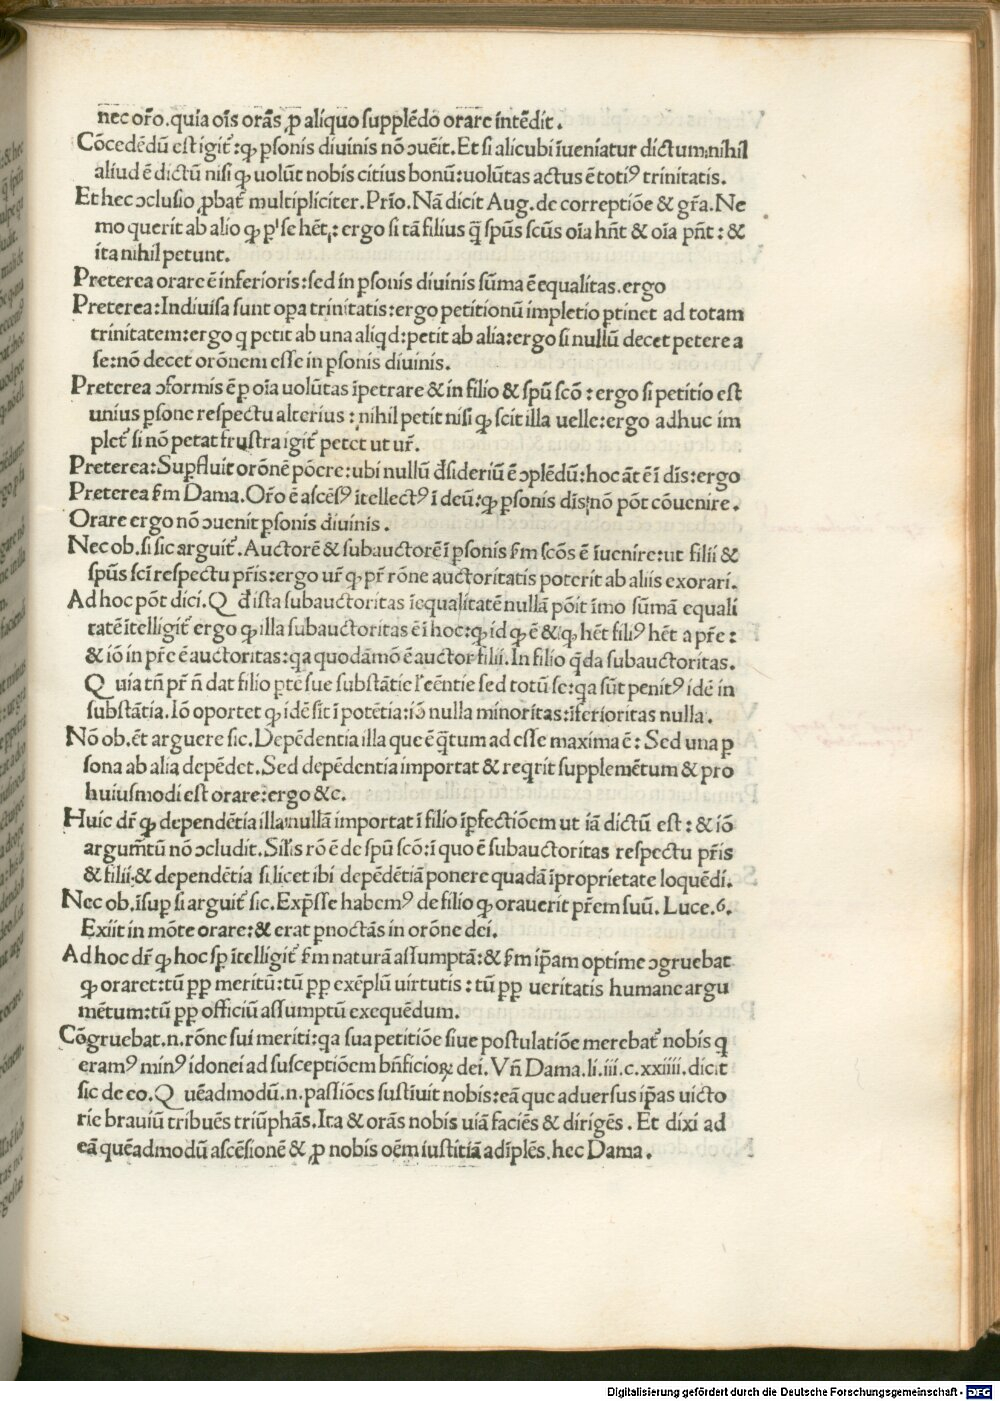 nec or̃o.quia oīs orās ꝓ aliquo supplēdo orare intēdit.
Cōcedēdū est igit᷑:ꝙ ꝑsonis diuinis nō ↄuēit.Et si alicubi iueniatur dictum:nihil
aliud ē dictū nisi ꝙ uolūt nobis citius bonū:uolūtas actus ē totiꝰ trinitatis.
Et hec ↄclusio ꝓbat᷑ multipliciter.Prīo.Nā dicit Aug.de correptiōe & gr̃a.Ne
mo querit ab alio ꝙ p' se hēt,: ergo si tā filius q̄ spūs scūs oīa hn̄t & oīa pn̄t: &
ita nihil petunt.
Preterea orare ē inferioris:sed in ꝑsonis diuinis sūma ē equalitas.ergo
Preterea:Indiuisa sunt opa trinitatis:ergo petitionū impletio ꝑtinet ad totam
trinitatem:ergo q petit ab una aliqd:petit ab alia:ergo si nullū decet petere a
se:nō decet orōnem esse in ꝑsonis diuinis.
Preterea ↄformis ē ꝑ oīa uolūtas īpetrare & in filio & spū scō : ergo si petitio est
unius ꝑsone respectu alterius : nihil petit nisi ꝙ scit illa uelle:ergo adhuc im
plet᷑ si nō petat frustra igit᷑ petet ut ur̃.
Preterea:Supfluit orōnē pōere:ubi nullū dsideriū ē ↄplēdū:hoc āt ē ī dīs:ergo
Preterea ẜm Dama.Or̃o ē ascēsꝰ ītellectꝰ ī deū:ꝙ ꝑsonis dīs nō pōt cōuenire.
Orare ergo nō ↄuenit ꝑsonis diuinis.
Nec ob.si sic arguit᷑.Auctorē & subauctorē ī ꝑsonis ẜm scōs ē īuenire:ut filii &
spūs scī respectu pr̃is:ergo ur̃ ꝙ pr̃ rōne auctoritatis poterit ab aliis exorari.
Ad hoc pōt dici.Q d ista subauctoritas īequalitatē nullā pōit īmo sūmā equali
tatē ītelligit᷑ ergo ꝙ illa subauctoritas ē ī hoc:ꝙ id ꝙ ē & ꝙ hēt filiꝰ hēt a pr̃e:
& iō in pr̃e ē auctoritas:qa quodāmō ē auctor filii.In filio q̄da subauctoritas.
Quia tn̄ pr̃ n̄ dat filio ptē sue substātie l' eēntie sed totū se:qa sūt penitꝰ idē in
substātia.Iō oportet ꝙ idē sit ī potētia:iō nulla minoritas:īferioritas nulla.
Nō ob.ēt arguere sic.Depēdentia illa que ē q̄tum ad esse maxima ē: Sed una ꝑ
sona ab alia depēdet.Sed depēdentia importat & reqrit supplemētum & pro
huiusmodi est orare:ergo &c.
Huic dr̃ ꝙ dependētia illa nullā importat ī filio īꝑfectiōem ut iā dictū est : & iō
argumt̄ū nō ↄcludit.Sīlis rō ē de spū scō:ī quo ē subauctoritas respectu pr̃is
& filii:& dependētia si licet ibi depēdētiā ponere quadā īproprietate loquēdi.
Nec ob.īsup si arguit᷑ sic.Exp̄sse habemꝰ de filio ꝙ orauerit pr̃em suū. Luce.6.
Exiit in mōte orare:& erat pnoctās in orōne dei.
Ad hoc dr̃ ꝙ hoc sp ītelligit᷑ ẜm naturā assumptā:& ẜm ip̄am optime ↄgruebat
ꝙ oraret:tū pp meritū:tū pp exēplū uirtutis : tū pp ueritatis humane argu
mētum:tū pp officiū assumptū exequēdum.
Cōgruebat.n.rōne sui meriti:qa sua petitiōe siue postulatiōe merebat᷑ nobis q
eramꝰ minꝰ idonei ad susceptiōem bn̄ficioꝝ dei. Vn̄ Dama.li.iii.c.xxiiii.dicit
sic de eo.Quēadmodū.n.passiōes sustīuit nobis:eā que aduersus ip̄as uicto
rie brauiū tribuēs triūphās.Ita & orās nobis uiā faciēs & dirigēs. Et dixi ad
eā quēadmodū ascēsionē & ꝓ nobis oēm iustitiā adīplēs.hec Dama.
Digitalisierung gefördert durch die Deutsche Forschungsgemeinschaft - DFG